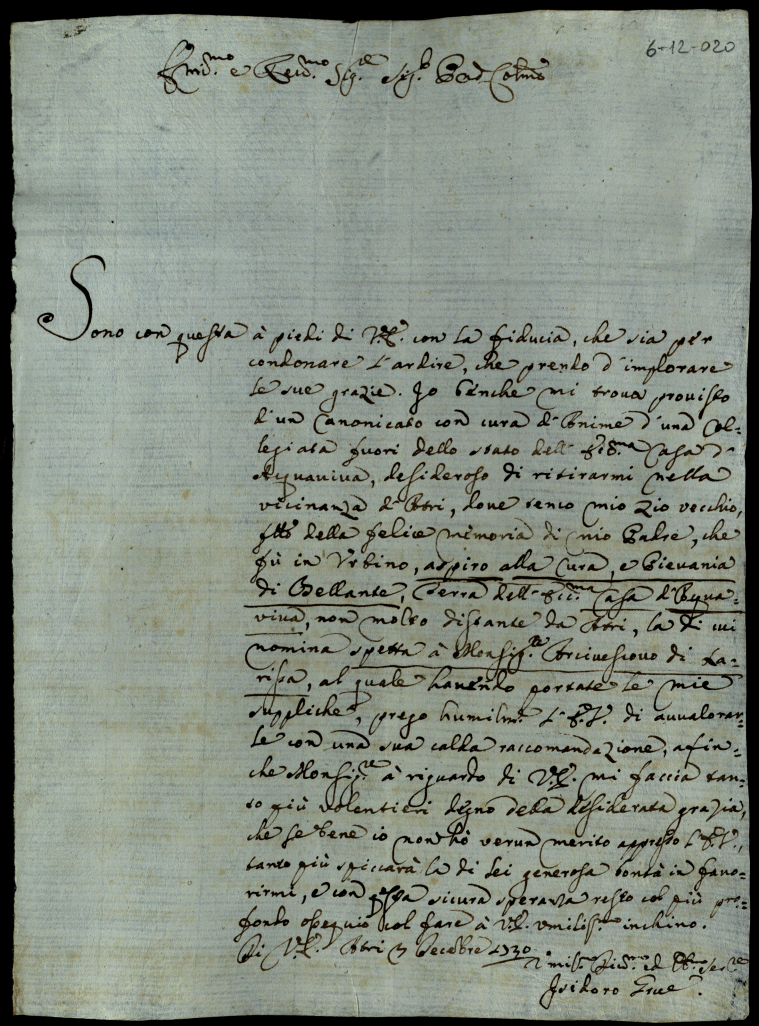 6-12-020
Em.mo e Rev.mo Sig.re Sig.r Pad. Col.mo
Sono con questa à piedi di V.E. con la fiducia, che sia per
condonare l'ardire, che prendo d'implorare
le sue grazie. Io benche mi trova provisto
d'un Canonicato con cura d'Anime d'una Col=
legiata fuori dello stato dell' Casa d'
Acquaviva, desideroso di ritirarmi nella
vicinanza d'Atri, dove tenco mio Zio vecchio,
frtto della felice memoria di mio Padre, che
fù in Urbino, aspiro alla Cura, e Pievania
di Bellante, Terra dell' Ecc.ma Casa d'Acqua=
viva, non molto distante da Atri, la di cui
nomina spetta à Monsig.re Arcivescovo di La=
rissa, al quale havendo portate le mie
suppliche, prego humilm.te l'E.V. di avvalorar=
le con una sua calda raccomandazione, afin=
che Monsig.re à riguardo di V.E. mi faccia tan=
to più volentieri degno della desiderata grazia,
che se bene io non hò verun merito appresso l'E.V.,
tanto più spiccarà la di lei generosa bontà in favo=
rirmi, e con questa sicura speranza resto col più pro=
fondo ossequio col fare à V.E. umiliss.mo inchino.
Di V.E. Atri Decebre 1730
Umil.mo Div.mo ed Obl.mo Ser.re
Isidoro Grue